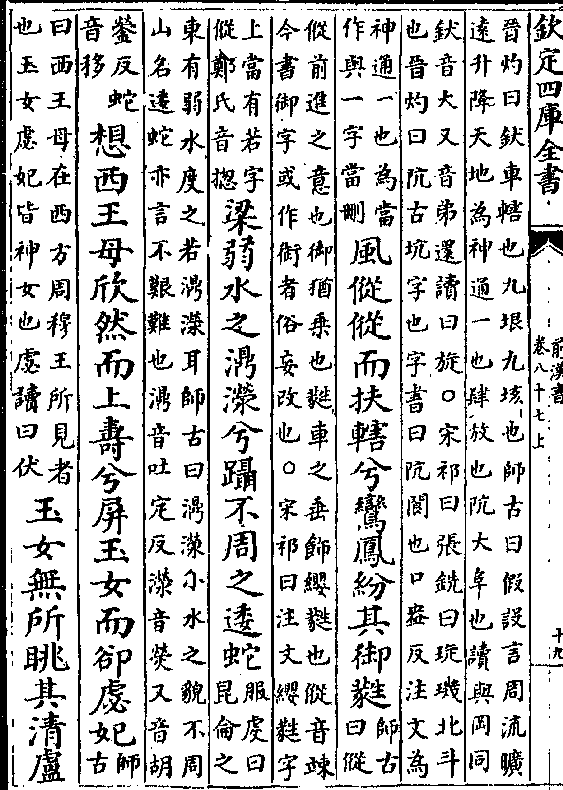 欽定四庫全書
前漢書
卷八十七上
十九
晉灼曰釱車轄也九垠九垓也師古曰假設言周流曠
遠升降天地為神通一也肆放也阬大阜也讀與岡同
釱音大又音弟還讀曰旋○宋祁曰張銑曰琁璣北斗
也晉灼曰阬古坑字也字書曰阬閬也口盎反注文為
神通一也為當
作與一字當刪
風傱傱而扶轄兮鸞鳳紛其御蕤
師古
曰傱
傱前進之意也御猶乗也蕤車之垂飾纓蕤也傱音竦
今書御字或作銜者俗妄改也○宋祁曰注文纓蕤字
上當有若字
傱鄭氏音摠
梁弱水之濎濙兮躡不周之逶蛇
服虔曰
昆侖之
東有弱水度之若濎濙耳師古曰濎濙小水之貌不周
山名逶蛇亦言不艱難也濎音吐定反濙音熒又音胡
鎣反蛇
音移
想西王母欣然而上壽兮屏玉女而卻虙妃
師
古
曰西王母在西方周穆王所見者
也玉女虙妃皆神女也虙讀曰伏
玉女無所眺其清盧